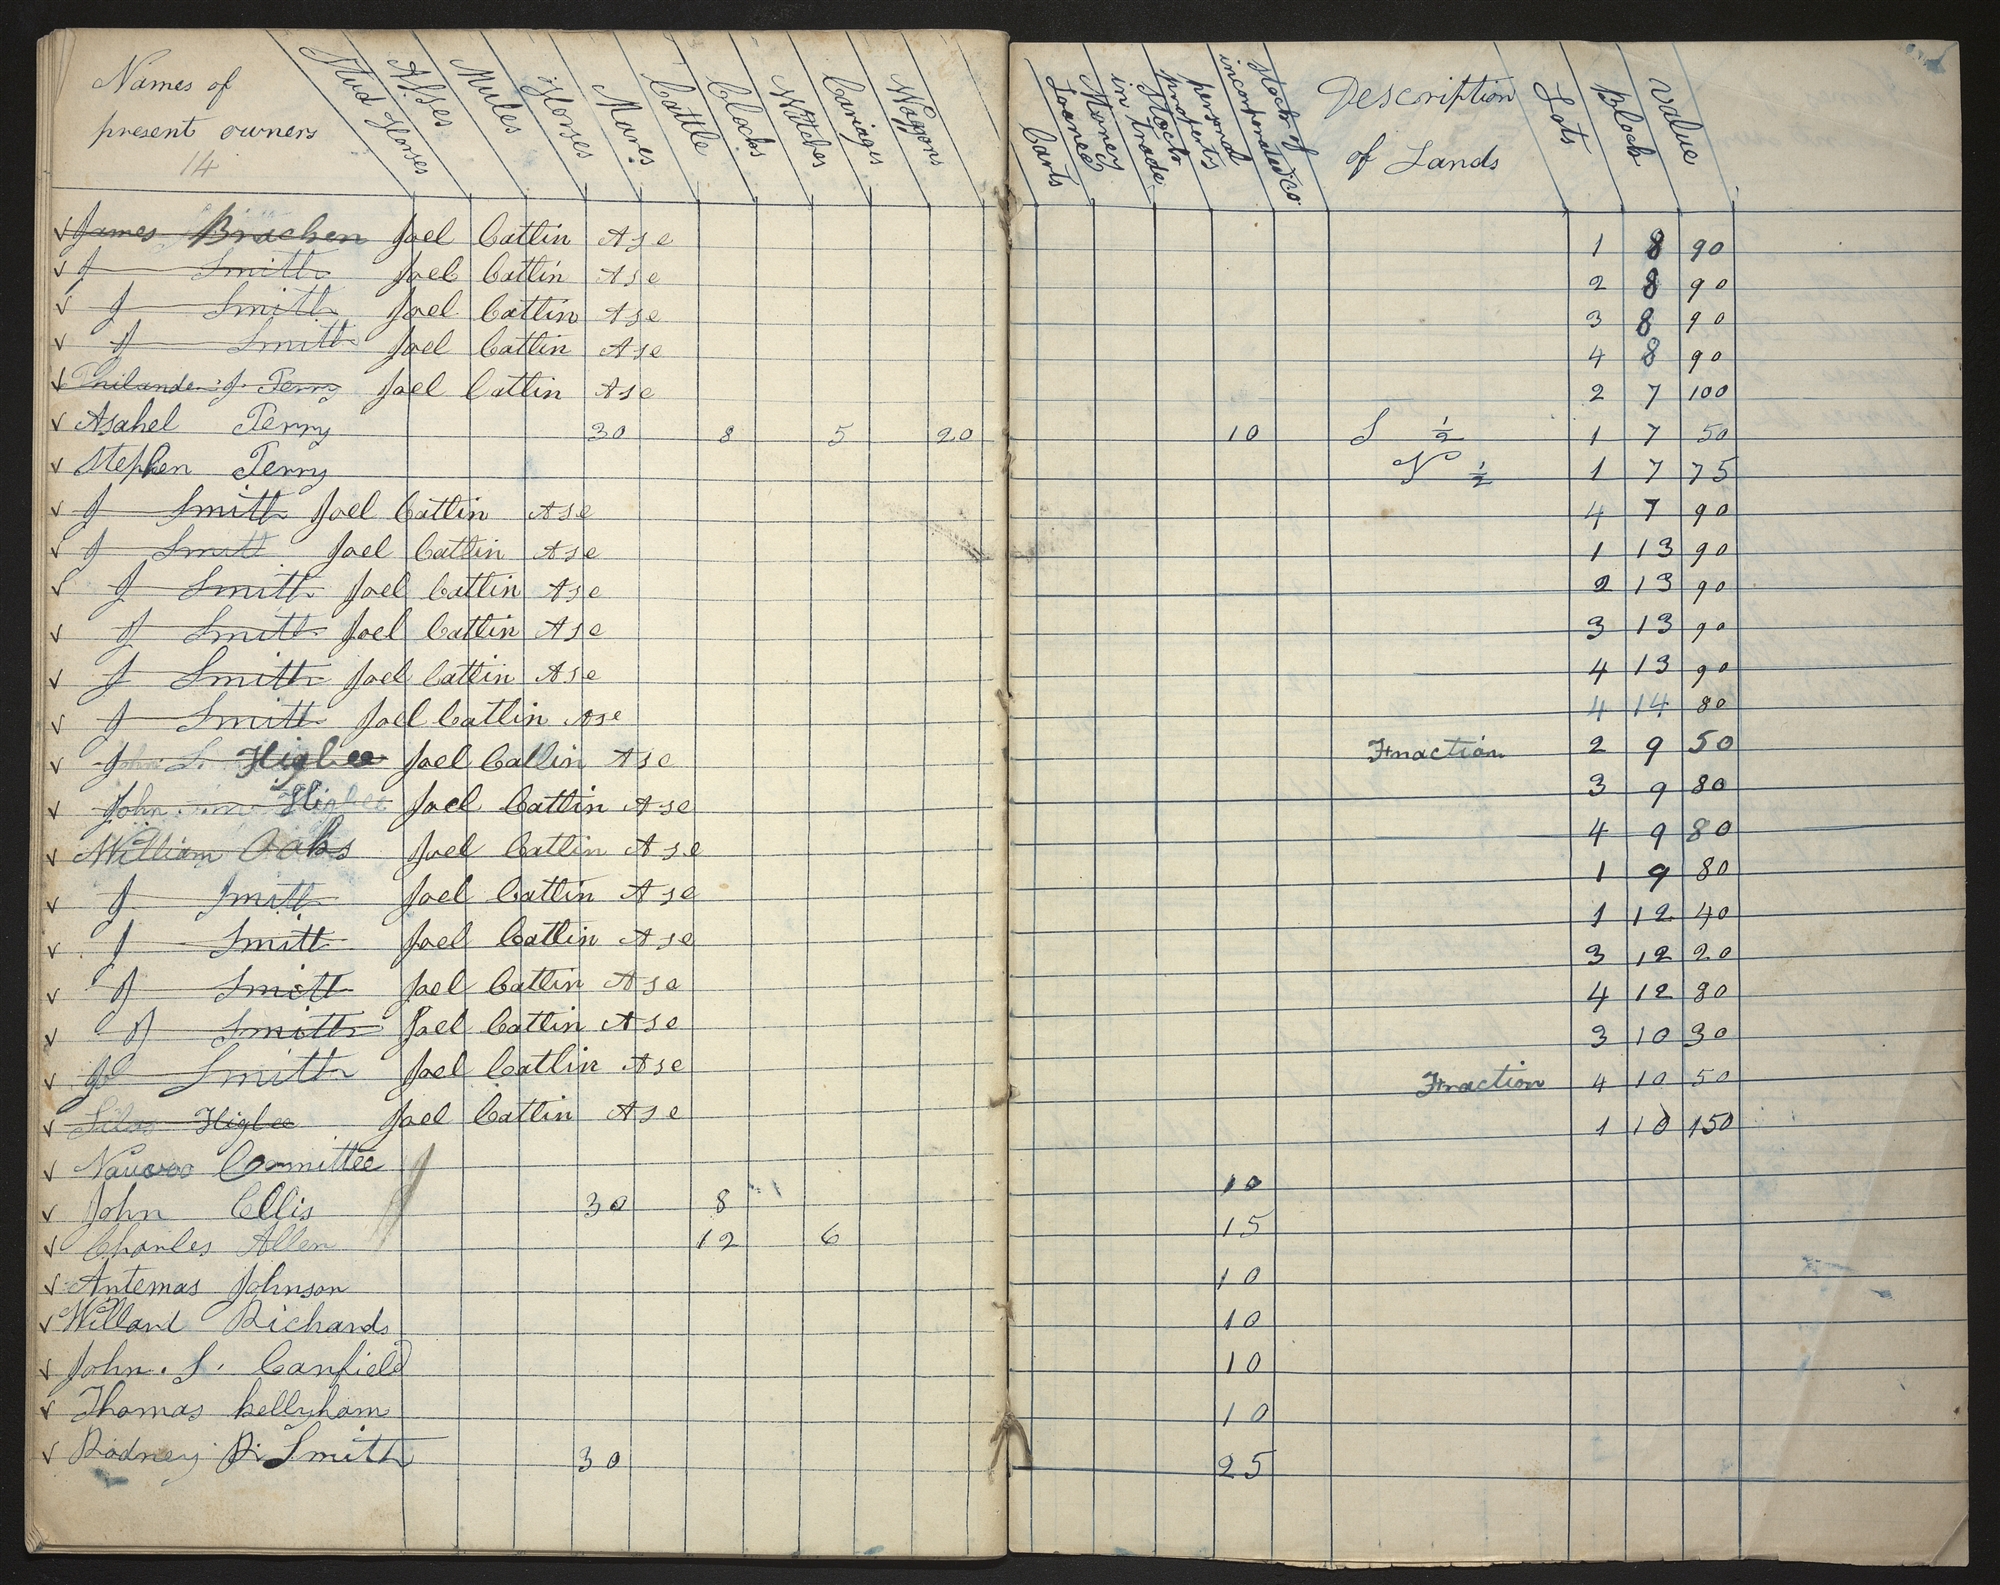 Names of
present owners
14
Stud Horses
Asses
Mules
Horses
Mares
Cattle
Clocks
Wtches
Cariages
Waggons
Carts
Money Loaned
Stock in trade
personal propertis
stock of incorporated co
Description of Lands
Lots
Block
Value
✓ James Brachen Joel Catlin Ase 1 8 90
✓ J Smith Joel Catlin Ase 2 8 90
✓ J Smith Joel Catlin Ase 3 8 90
✓ J Smith Joel Catlin Ase 4 8 90
✓ Philander J. Perry Joel Catlin Ase 2 7 100
✓ Asahel Perry 30 8 5 20 10 S 1/2 1 7 50
✓ Stephen Perry N 1/2 1 7 75
✓ J Smith Joel Catlin Ase 4 7 90
✓ J Smitt Joel Catlin Ase 1 13 90
✓ J Smith Joel Catlin Ase 2 13 90
✓ J Smith Joel Catlin Ase 3 13 90
✓ J Smith Joel Catlin Ase 4 13 90
✓ J Smith Joel Catlin Ase 4 14 80
✓ John S. Higbee Joel Catlin Ase Fraction 2 9 50
✓ John Higbee Joel Catlin Ase 3 9 80
✓ William Oaks Joel Catlin Ase 4 9 80
✓ J Smith Joel Catlin Ase 1 9 80
✓ J Smitt Joel Catlin Ase 1 12 40
✓ J Smitt Joel Catlin Ase 3 12 20
✓ J Smith Joel Catlin Ase 4 12 30
✓ J Smith Joel Catlin Ase 3 10 30
✓ Silas Higbee Joel Catlin Ase Fraction 4 10 50
1 10 150
✓ Nauvoo Committee
✓ John Ellis 30 8 10
✓ Charles Allen 12 6 15
✓ Artemas Johnson 10
✓ Willard Richards 10
✓ John. S. Canfield 10
✓ Thomas kellyham 10
✓ Rodney R. Smith 30 25